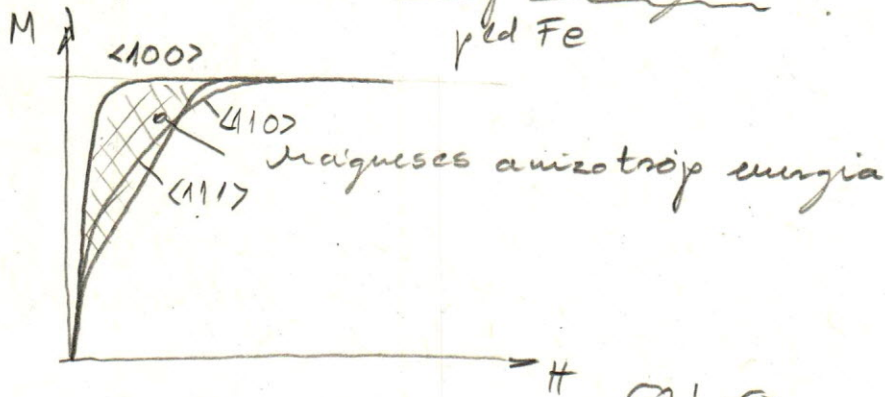 M
<100>
pld Fe
<110>
Mágneses anizotróp energia
<111>
H